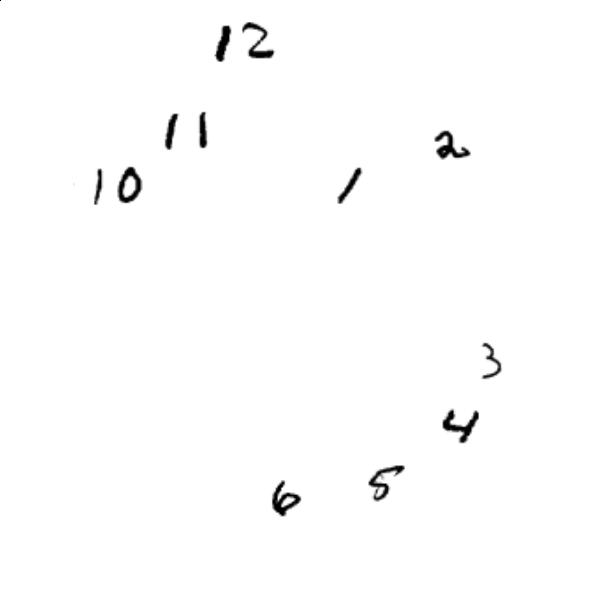 12
11
2
10
1
3
4
5
6